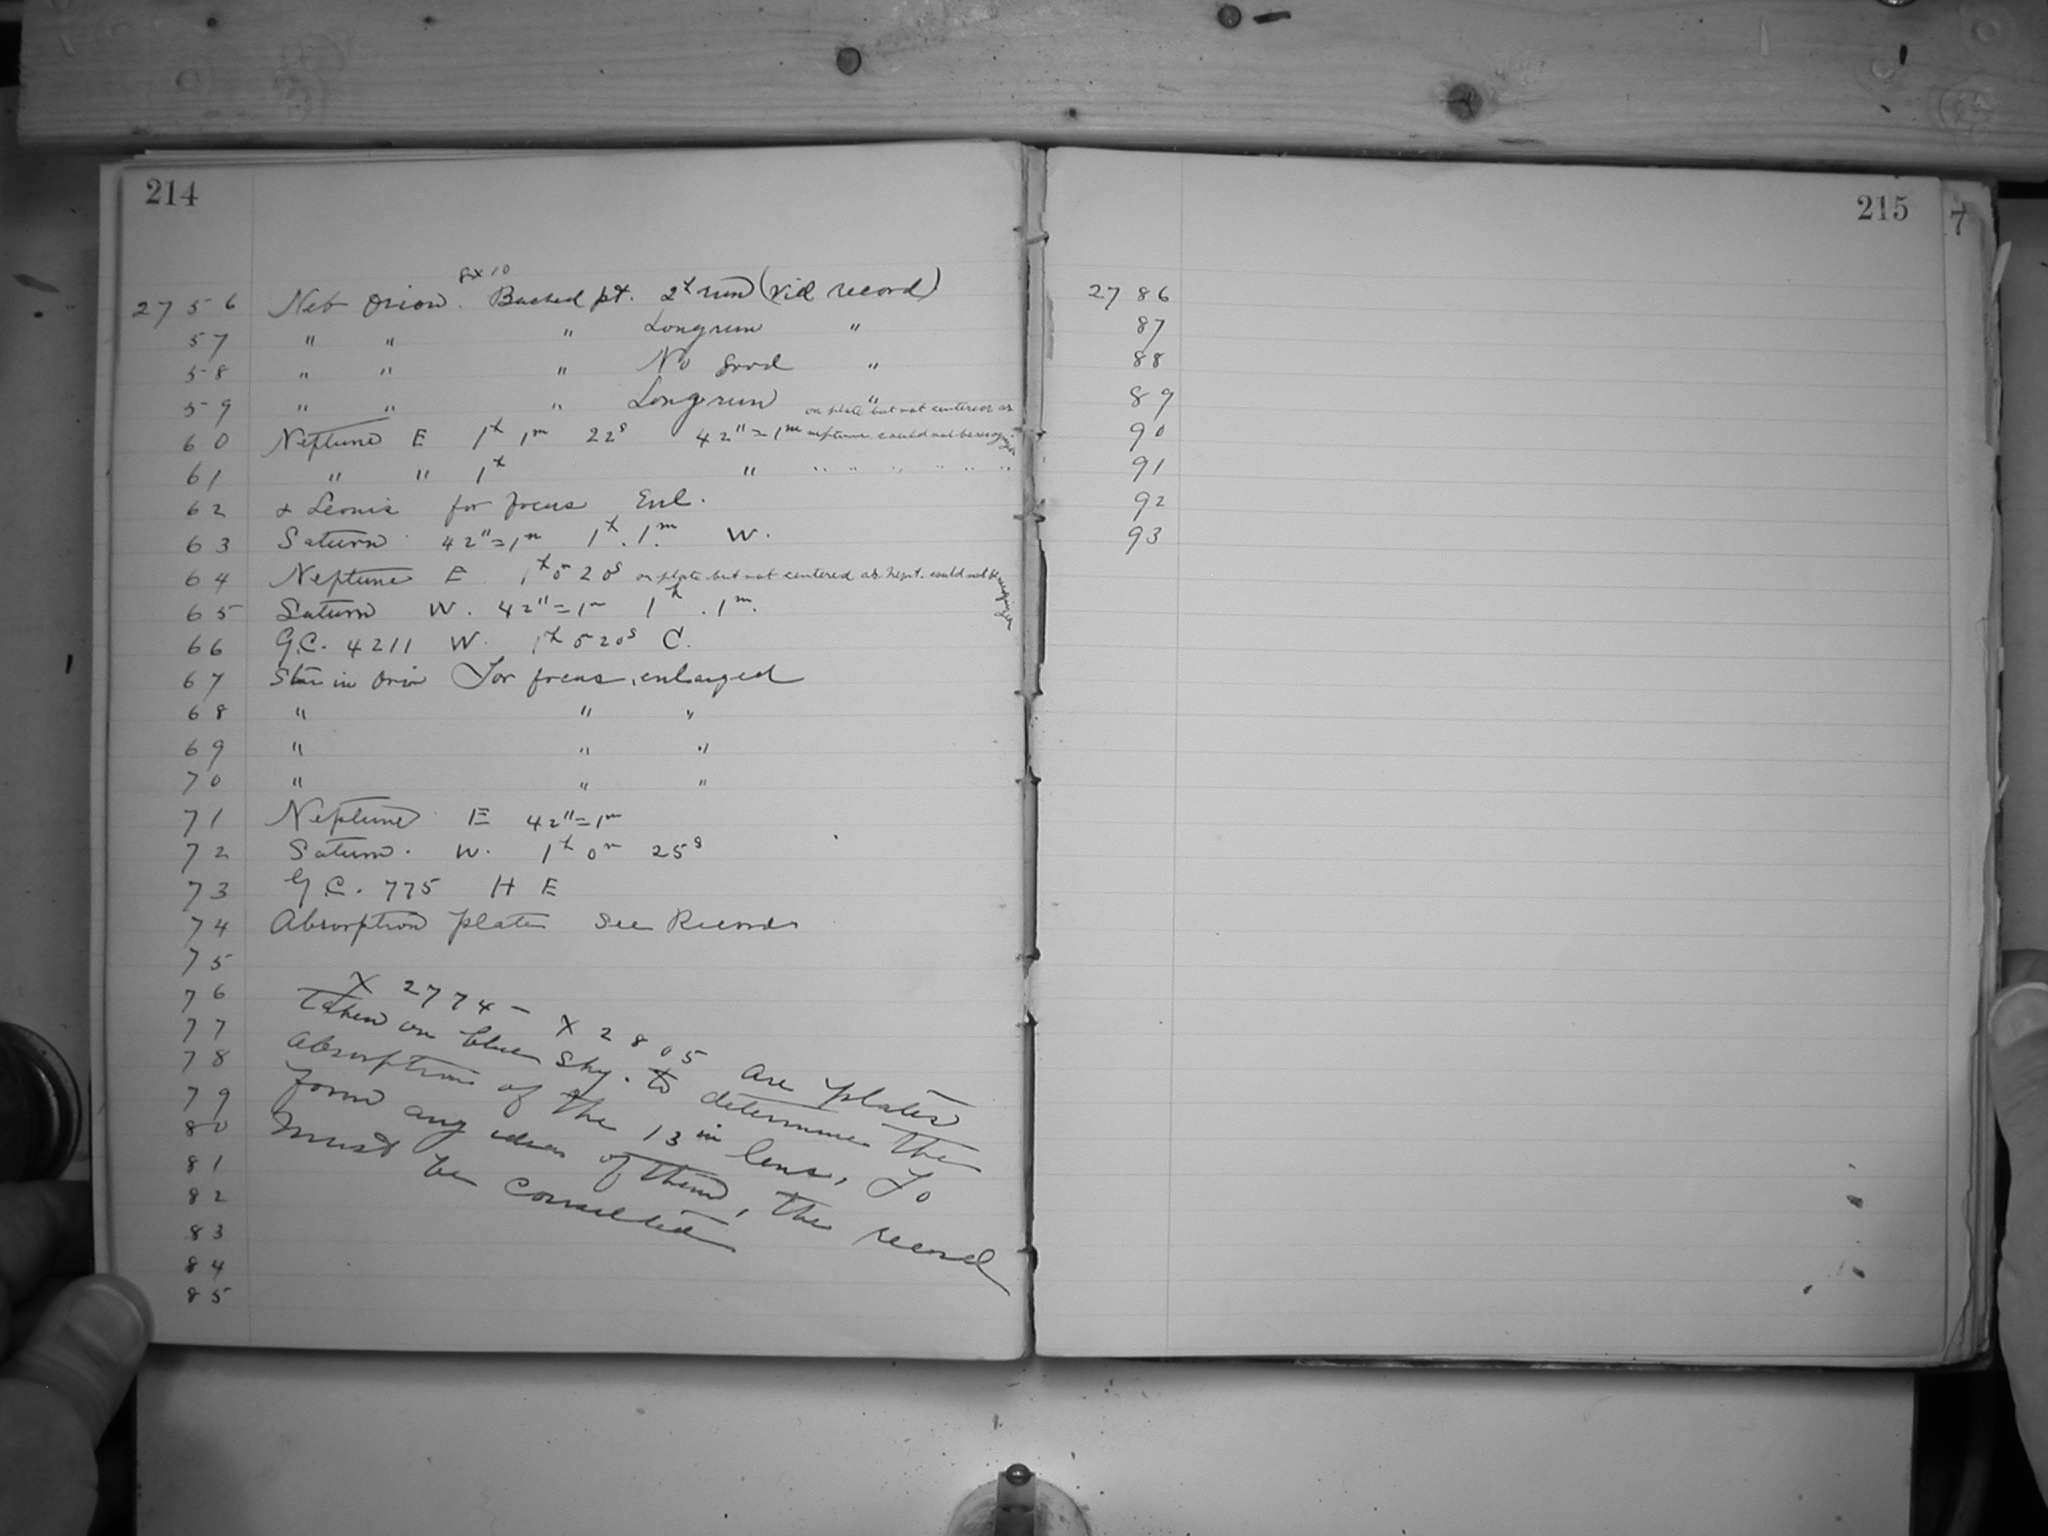 214
8x10
2756 Neb Orion. Backed pt. 2h run (vid record)
57 " " " Long run "
58 " " " No good "
59 " " " Long run "
on plate but not centered as
60 Neptune E 1h 1m 22s 42"=1m neptune could not be
61 " " 1h " " " " " " "
62 α Leonis for focus Enl.
63 Saturn 42"=1m 1h. 1m. W.
64 Neptune E 1h 0 20s on plate but not centered as Nept. could not be
65 Saturn W. 42"=1m 1h. 1m.
66 G.C. 4211 W. 1h 0 20s C.
67 Star in Orion For focus, enlarged
68 " " "
69 " " "
70 " " "
71 Neptune E 42"=1m
72 Saturn. W. 1h 0m 25s
73 G.C. 775 H E
74 Absorption plate See Records
75
76
77
78
79
80
81
82
83
84
85
X 2774 - X 2805 are plates
taken on blue sky. to determine the
absorption of the 13 in lens, To
form any idea of them, the record
must be consulted
215
7
2786
87
88
89
90
91
92
93